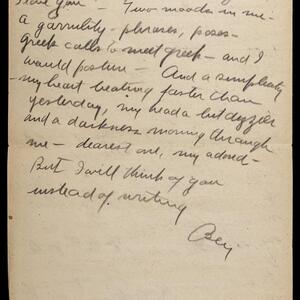 leave you — Two moods in me —
a garrulity — phrases, poses —
Greek calls to meet greek — and I
would posture — And a simplicity
— my heart beating faster than
yesterday, my head a bit dizzier
and a darkness moving through
me — dearest one, my adored —
But I will think of you
instead of writing
Ben